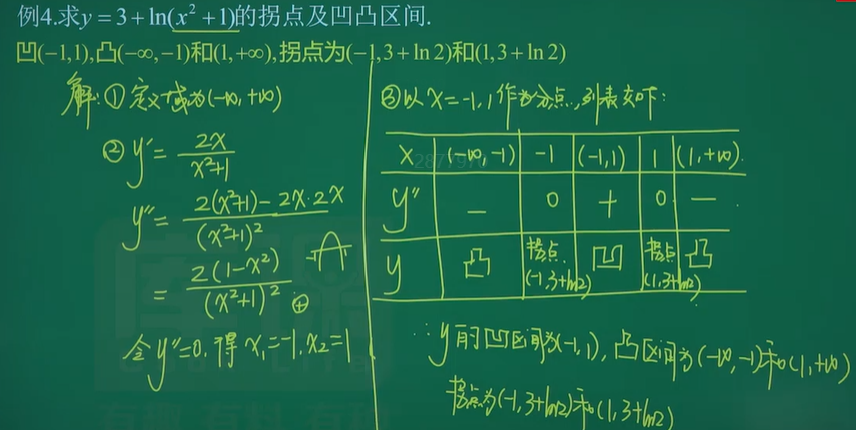 例4.求y=3+ln(x²+1)的拐点及凹凸区间.
凹(-1,1),凸(-∞,-1)和(1,+∞),拐点为(-1,3+ln2)和(1,3+ln2)
解:①定义域为(-∞,+∞)
②y'=2x/(x²+1)
y''=(2(x²+1)-2x·2x)/(x²+1)²
=2(1-x²)/(x²+1)² ⊕
令y''=0.得x₁=-1.x₂=1
③以x=-1,1作为分点,列表如下:
x (-∞,-1) -1 (-1,1) 1 (1,+∞).
y'' − 0 + 0 −
y 凸 拐点(-1,3+ln2) 凹 拐点(1,3+ln2) 凸
∴y的凹区间为(-1,1),凸区间为(-∞,-1)和(1,+∞)
拐点为(-1,3+ln2)和(1,3+ln2)